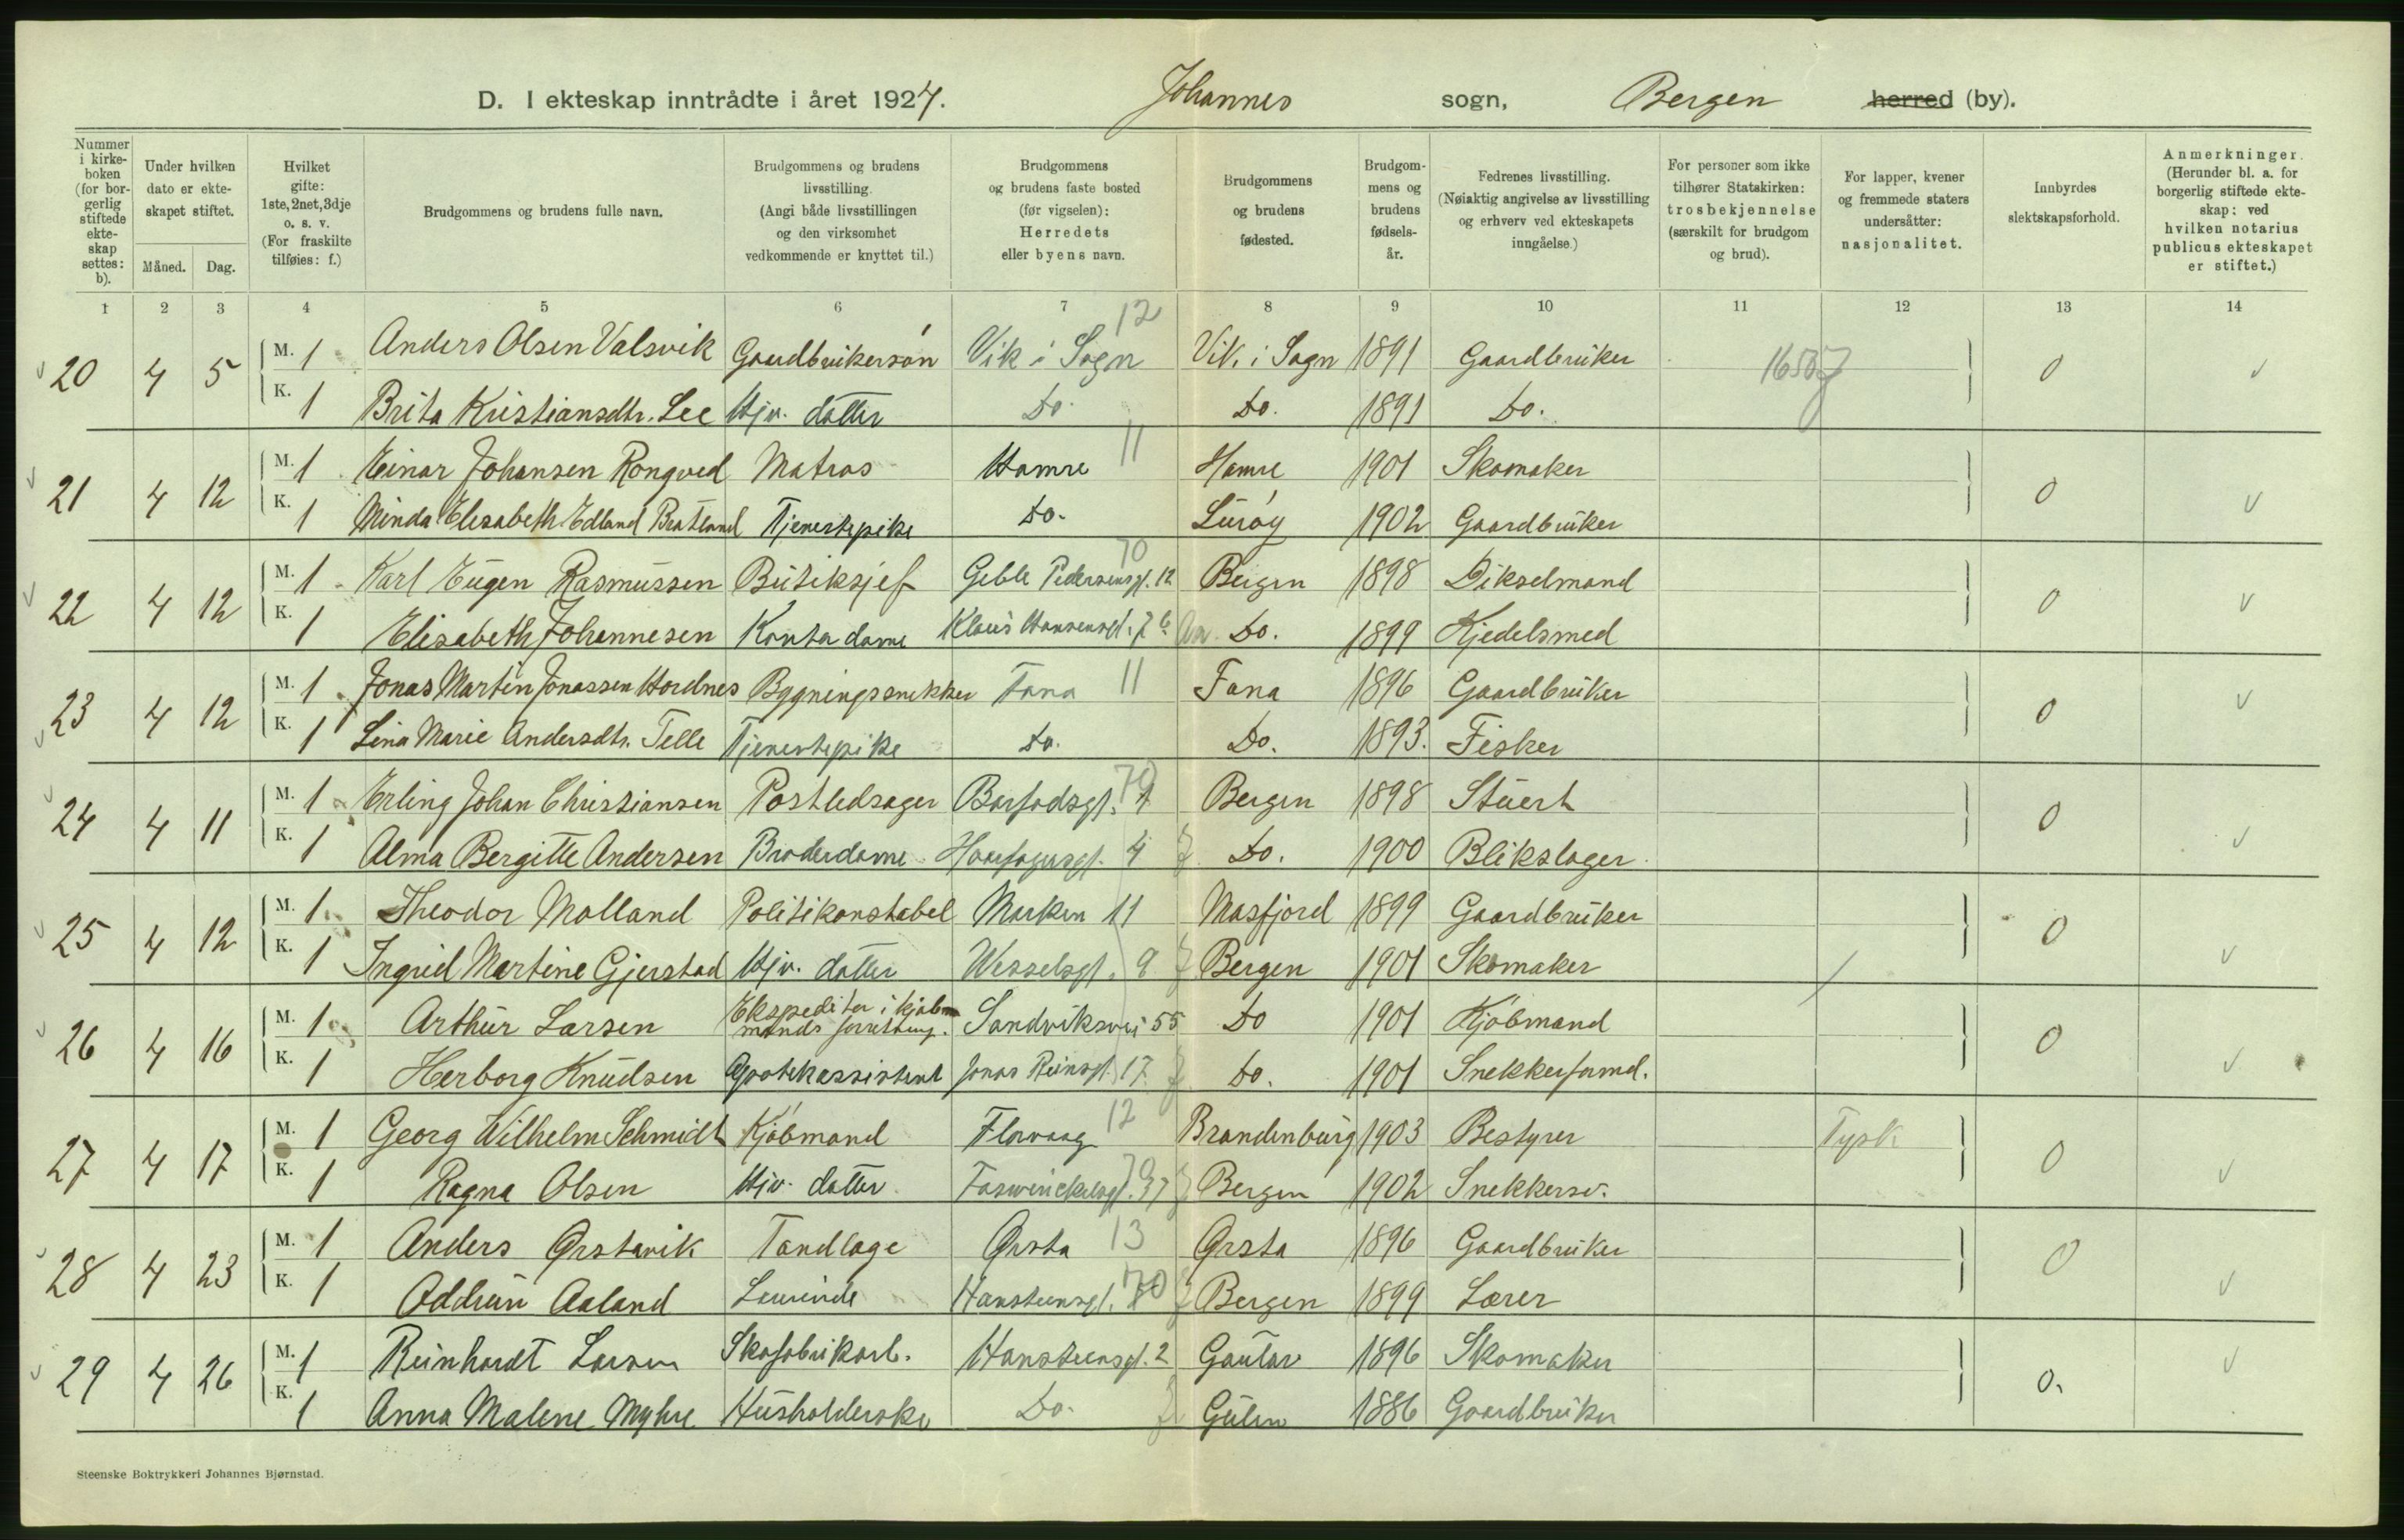 D. I ekteskap inntrådte i året 1924. Johannes sogn, Bergen herred (by).
Nummer i kirkeboken (for borgerlig stiftede ekteskap settes: b).
Under hvilken dato er ekteskapet stiftet.
Måned. Dag.
Hvilket gifte: 1ste, 2net, 3dje o. s. v. (For fraskilte tilføies: f.)
Brudgommens og brudens fulle navn.
Brudgommens og brudens livsstilling. (Angi både livsstillingen og den virksomhet vedkommende er knyttet til.)
Brudgommens og brudens faste bosted (før vigselen): Herredets eller byens navn.
Brudgommens og brudens fødested.
Brudgommens og brudens fødselsår.
Fedrenes livsstilling. (Nøiaktig angivelse av livsstilling og erhverv ved ekteskapets inngåelse.)
For personer som ikke tilhører Statskirken: trosbekjennelse (særskilt for brudgom og brud).
For lapper, kvener og fremmede staters undersåtter: nasjonalitet.
Innbyrdes slektskapsforhold.
Anmerkninger. (Herunder bl. a. for borgerlig stiftede ekteskap: ved hvilken notarius publicus ekteskapet er stiftet.)
1 2 3 4 5 6 7 8 9 10 11 12 13 14
12
20 4 5 M. 1 Anders Olsen Valsvik Gaardbrukersøn Vik i Sogn Vik i Sogn 1891 Gaardbruker 0
K. 1 Brita Kristiansdtr. Lee Hjv. datter Do. Do. 1891 Do.
21 4 12 M. 1 Einar Johansen Rongved Matros Hamre 11 Hamre 1901 Skomaker 0
K. 1 Minda Elisabeth Edland Bratland Tjenestepike Do. Lurøy 1902 Gaardbruker
70
22 4 12 M. 1 Karl Eugen Rasmussen Butiksjef Geble Pedersensgt. 12 Bergen 1898 Bikselmand 0
K. 1 Elisabeth Johannesen Kontordame Klaus Hansensgt. 7 b Do. 1899 Kjedelsmed
23 4 12 M. 1 Jonas Martin Jonassen Hordnes Bygningssnekker Fana 11 Fana 1896 Gaardbruker 0
K. 1 Lina Marie Andersdtr. Telle Tjenestepike Do. Do. 1893. Fisker
70
24 4 11 M. 1 Erling Johan Christiansen Postledsager Barfodsgt. Bergen 1898 Stuert 0
K. 1 Alma Bergitte Andersen Broderdame Haarfagersgt. 4 Do. 1900 Blikslager
25 4 12 M. 1 Theodor Molland Politikonstabel Marken 11 Masfjord 1899 Gaardbruker 0
K. 1 Ingrid Martine Gjerstad Hjv. datter Wesselsgt. 9 Bergen 1901 Skomaker
26 4 16 M. 1 Arthur Larsen Ekspeditør i kjøbmands forretning. Sandviksvei 55 Do 1901 Kjøbmand 0
K. 1 Herborg Knudsen Apotekassistent Jonas Reinsgt. 17 Do. 1901 Snekkerformd.
27 4 17 M. 1 Georg Wilhelm Schmidt Kjøbmand Florvaag 12 Brandenburg 1903 Bestyrer Tysk 0
K. 1 Ragna Olsen Hjv. datter Bergen 1902 Snekkersv.
28 4 23 M. 1 Anders Ørstavik Tandlæge Ørsta 13 Ørsta 1896 Gaardbruker 0
K. 1 Oddrun Aaland Lærerinde Hansteensgt. 70 Bergen 1899 Lærer
29 4 26 M. 1 Reinhardt Larsen Skofabrikarb. Hansteensgt. 2 Gaular 1896 Skomaker 0.
K. 1 Anna Malene Myhre Husholderske Do. Gulen 1886 Gaardbruker
Steenske Boktrykkeri Johannes Bjørnstad.